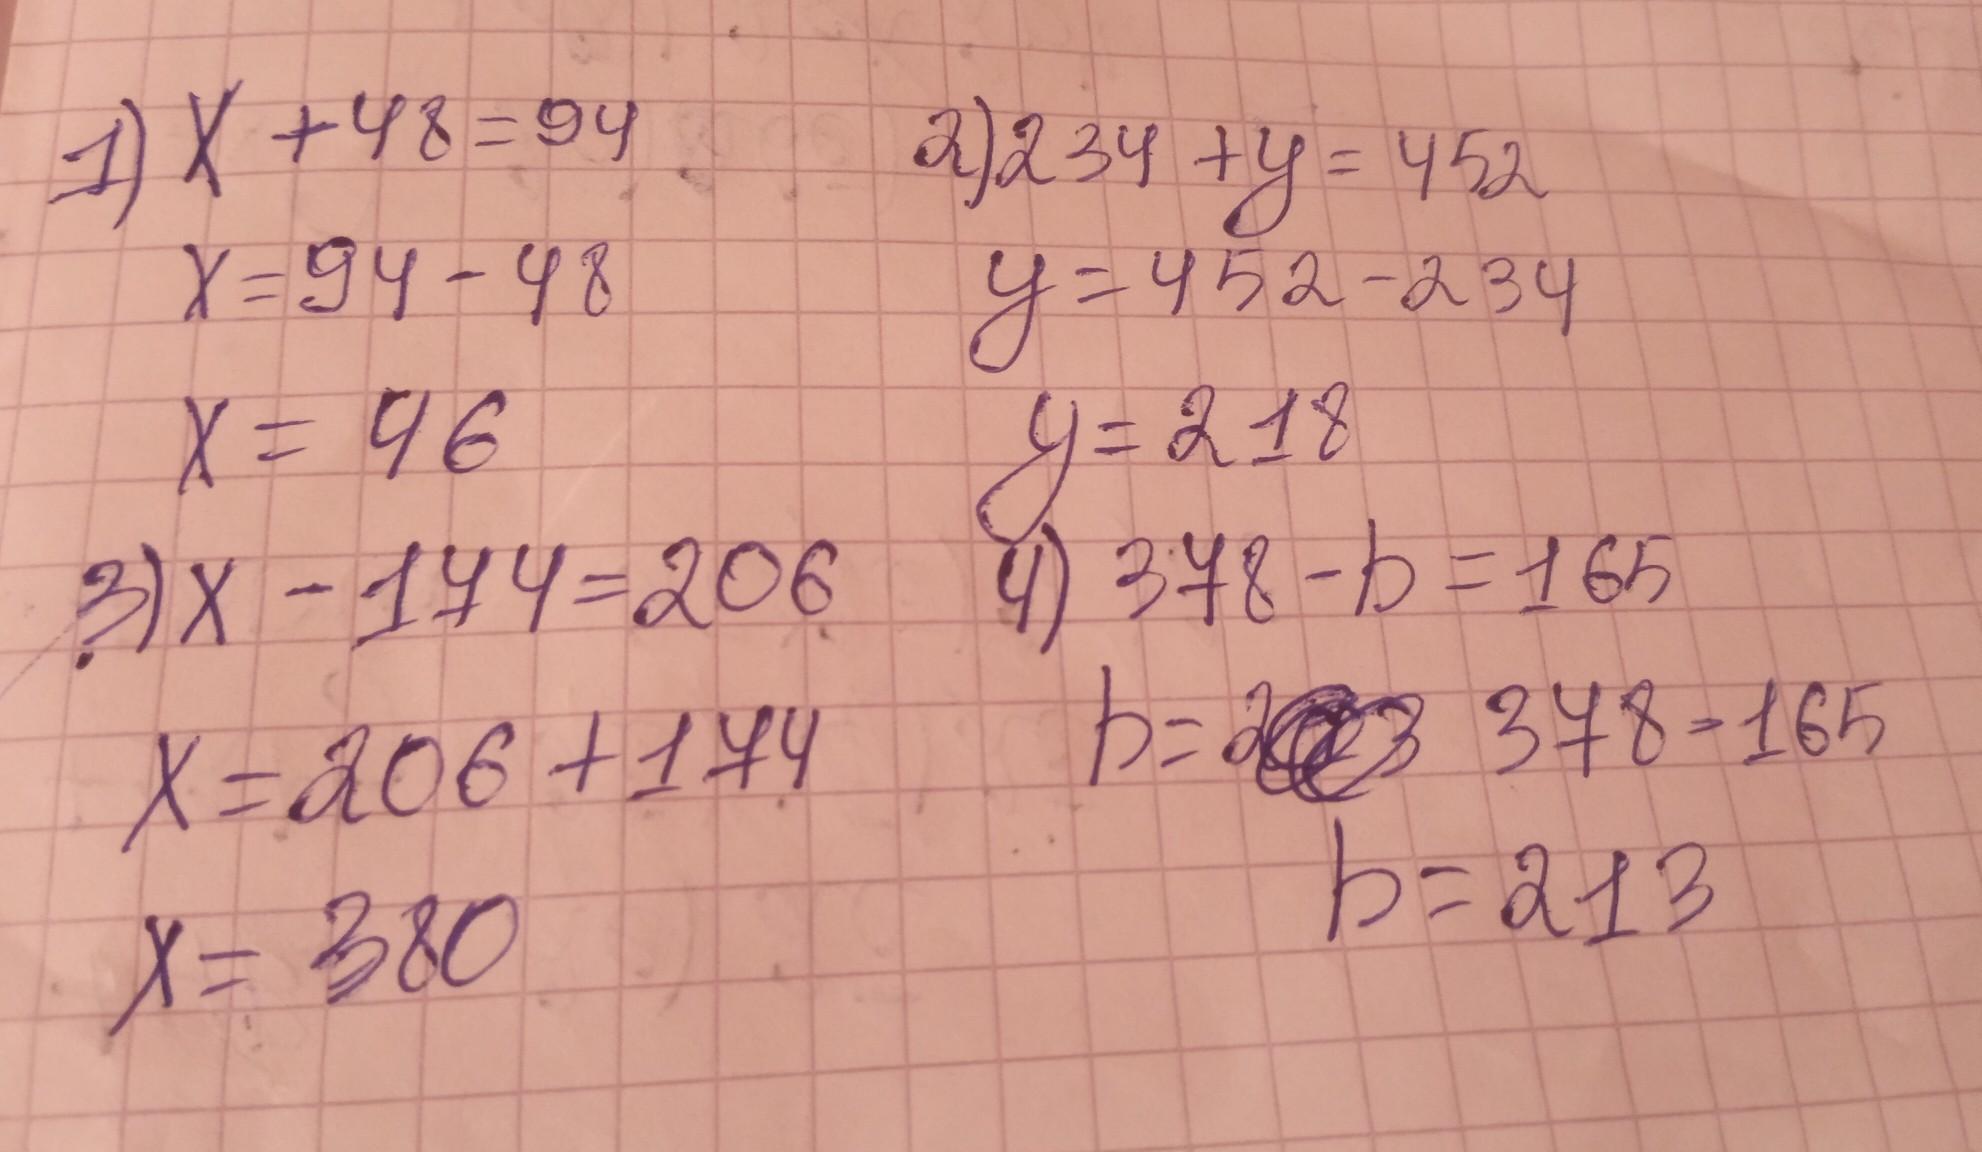 1) x + 48 = 94
x = 94 - 48
x = 46
2) 234 + y = 452
y = 452 - 234
y = 218
3) x - 174 = 206
x = 206 + 174
x = 380
4) 378 - b = 165
b = 378 - 165
b = 213